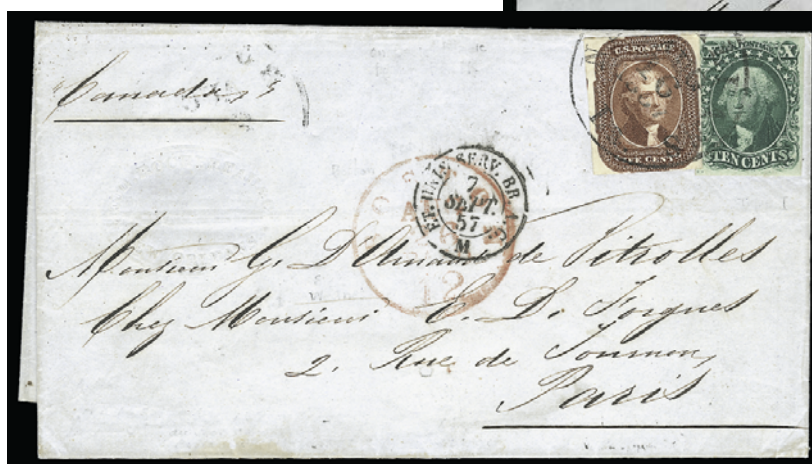 Canada
U.S. POSTAGE
FIVE CENTS
X X
TEN CENTS
ET. UNIS SERV. BR. A. C.
7
SEPT.
57
M
12
Monsieur G. D'Arnaud de Vitrolles
Chez Monsieur E. D. Forgues
2. Rue de Tournon,
Paris